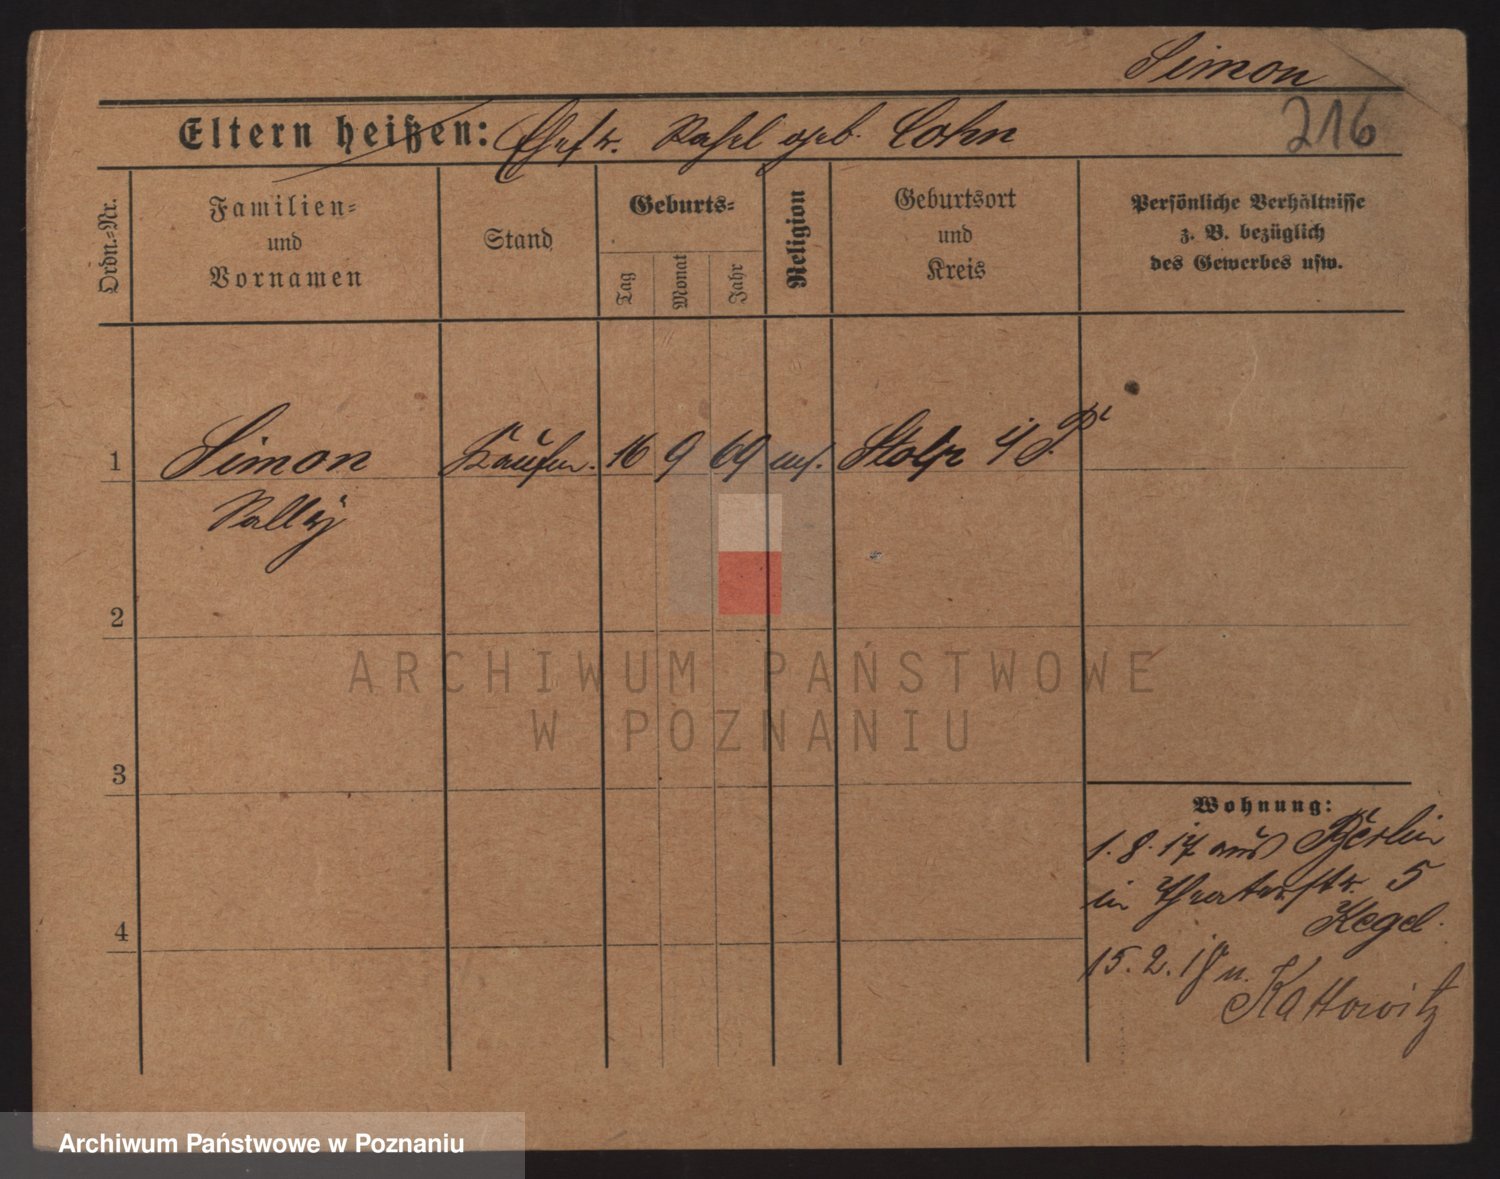 Simon
216
Eltern heißen: Ehefr. Rahel geb. Cohn
Ordn.-Nr.
Familien-
und
Vornamen
Stand
Geburts-
Tag
Monat
Jahr
Religion
Geburtsort
und
Kreis
Persönliche Verhältnisse
z. B. bezüglich
des Gewerbes usw.
1 Simon Kaufm. 16 9 69 mos. Stolp i/P.
Sally
2
3
4
Wohnung:
1. 8. 17 aus Berlin
in Theaterstr. 5
Kegel.
15. 2. 18 n.
Kattowitz
ARCHIWUM PAŃSTWOWE
W POZNANIU
Archiwum Państwowe w Poznaniu